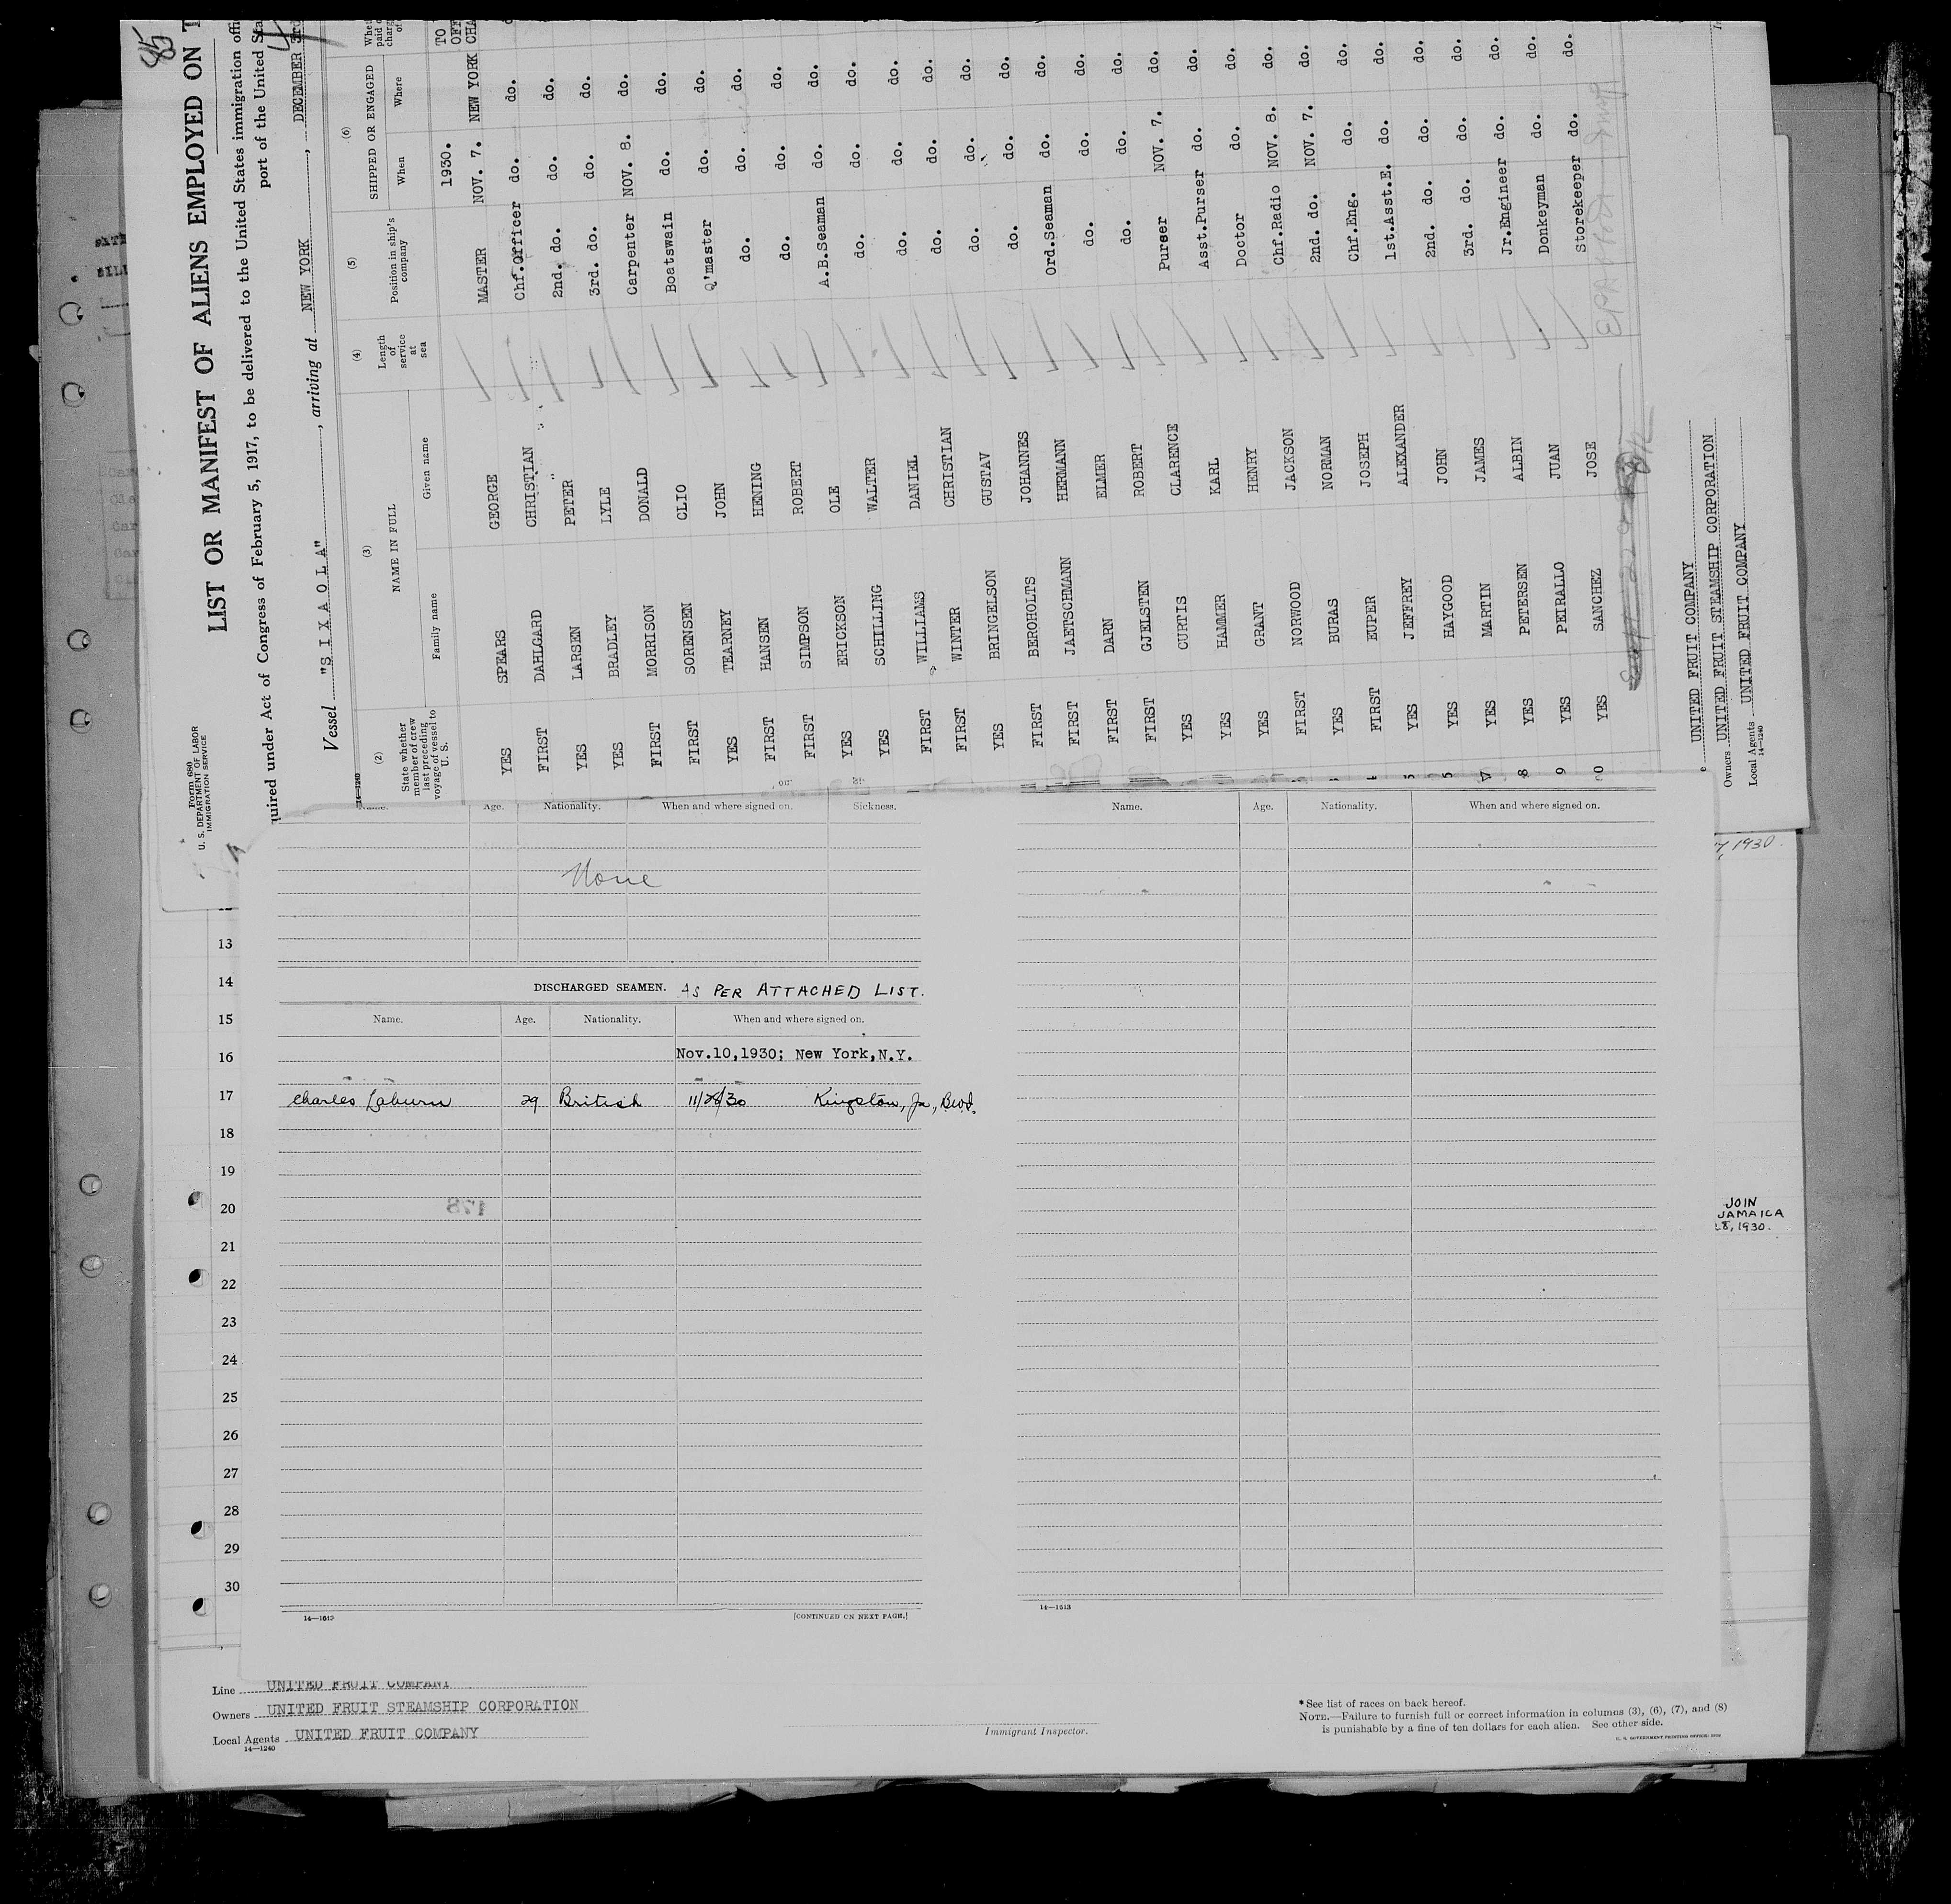 85
LIST OR MANIFEST OF ALIENS EMPLOYED ON T
Form 680
U. S. DEPARTMENT OF LABOR
IMMIGRATION SERVICE
quired under Act of Congress of February 5, 1917, to be delivered to the United States immigration offi
port of the United Sta
4
Vessel "S I X A O L A", arriving at NEW YORK, DECEMBER 3rd
14—1240
(2) (3) (4) (5) (6)
State whether member of crew last preceding voyage of vessel to U. S. NAME IN FULL Length of service at sea Position in ship's company SHIPPED OR ENGAGED
Family name Given name When Where
1930.
YES SPEARS GEORGE MASTER NOV. 7. NEW YORK
FIRST DAHLGARD CHRISTIAN Chf.Officer do. do.
YES LARSEN PETER " 2nd. do. do. do.
YES BRADLEY LYLE 3rd. do. do. do.
FIRST MORRISON DONALD Carpenter NOV. 8. do.
FIRST SORENSEN CLIO Boatswain do. do.
YES TEARNEY JOHN Q'master do. do.
FIRST HANSEN HENING do. do. do.
FIRST SIMPSON ROBERT do. do. do.
YES ERICKSON OLE A.B.Seaman do. do.
YES SCHILLING WALTER do. do. do.
FIRST WILLIAMS DANIEL do. do. do.
FIRST WINTER CHRISTIAN do. do. do.
YES BRINGELSON GUSTAV do. do. do.
FIRST BEROHOLTS JOHANNES do. do. do.
FIRST JAETSCHMANN HERMANN Ord.Seaman do. do.
FIRST DARN ELMER do. do. do.
FIRST GJELSTEN ROBERT do. do. do.
YES CURTIS CLARENCE Purser NOV. 7. do.
YES HAMMER KARL Asst.Purser do. do.
YES GRANT HENRY Doctor do. do.
FIRST NORWOOD JACKSON Chf.Radio NOV. 8. do.
YES BURAS NORMAN 2nd. do. NOV. 7. do.
FIRST EUPER JOSEPH Chf.Eng. do. do.
YES JEFFREY ALEXANDER 1st.Asst.E. do. do.
YES HAYGOOD JOHN 2nd. do. do. do.
YES MARTIN JAMES 3rd. do. do. do.
YES PETERSEN ALBIN Jr.Engineer do. do.
YES PEIRALLO JUAN Donkeyman do. do.
YES SANCHEZ JOSE Storekeeper do. do.
UNITED FRUIT COMPANY
Owners UNITED FRUIT STEAMSHIP CORPORATION
Local Agents UNITED FRUIT COMPANY
14—1240
1930.
Name. Age. Nationality. When and where signed on. Sickness.
None
DISCHARGED SEAMEN. AS PER ATTACHED LIST.
Name. Age. Nationality. When and where signed on.
Nov.10,1930; New York,N.Y.
Charles Laburn 29 British 11/28/30 Kingston, Ja, B.W.I.
178
14—1613
[CONTINUED ON NEXT PAGE.]
Name. Age. Nationality. When and where signed on.
14—1613
13
14
15
16
17
18
19
20
21
22
23
24
25
26
27
28
29
30
JOIN
JAMAICA
28, 1930.
Line UNITED FRUIT COMPANY
Owners UNITED FRUIT STEAMSHIP CORPORATION
Local Agents UNITED FRUIT COMPANY
14—1240
Immigrant Inspector.
* See list of races on back hereof.
NOTE.—Failure to furnish full or correct information in columns (3), (6), (7), and (8)
is punishable by a fine of ten dollars for each alien. See other side.